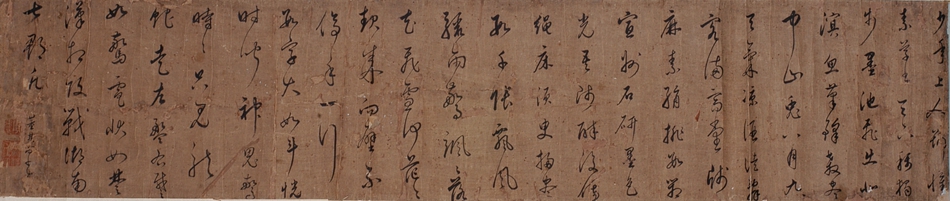 少年上人號懷
素草書天下稱獨
步墨池飛出北
溟魚筆鋒殺盡
中山兔八月九
月天氣涼酒徒詞
客滿高堂牋
麻素絹排數箱
宣州石硯墨色
光吾師醉後倚
繩床須臾掃盡
數千張飄風
驟雨驚颯颯落
花飛雪何茫茫
起來向壁不
停手一行
數字大如斗怳
怳如聞神鬼驚
時時只見龍
蛇走左盤右蹙
如驚電狀如楚
漢相攻戰湖南
七郡凡
董其昌書